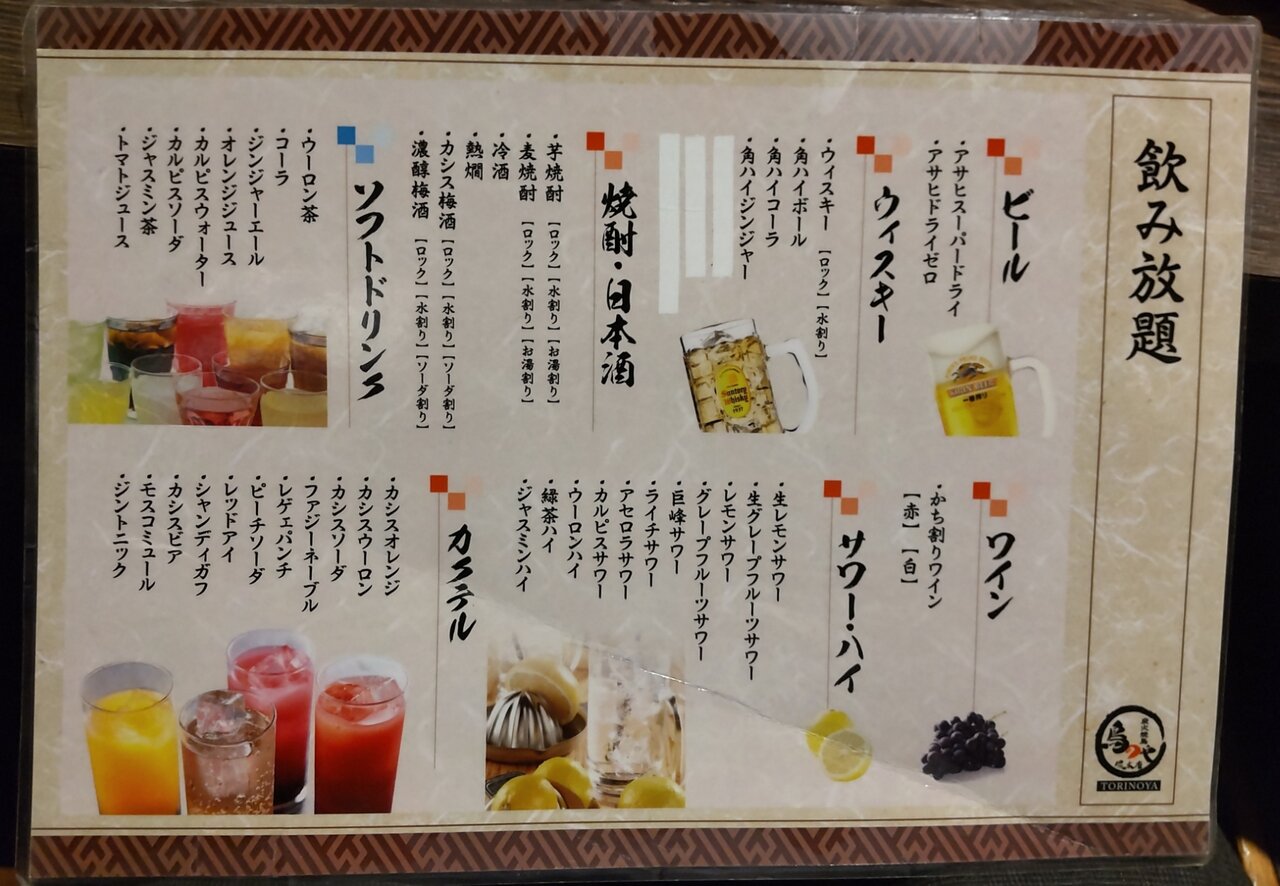 飲み放題
ビール
・アサヒスーパードライ
・アサヒドライゼロ
KIRIN BEER
一番搾り
ウィスキー
・ウィスキー [ロック] [水割り]
・角ハイボール
・角ハイコーラ
・角ハイジンジャー
Suntory
Whisky
1937
焼酎・日本酒
・芋焼酎 [ロック] [水割り] [お湯割り]
・麦焼酎 [ロック] [水割り] [お湯割り]
・冷酒
・熱燗
・カシス梅酒 [ロック] [水割り] [ソーダ割り]
・濃醇梅酒 [ロック] [水割り] [ソーダ割り]
ソフトドリンク
・ウーロン茶
・コーラ
・ジンジャーエール
・オレンジジュース
・カルピスウォーター
・カルピスソーダ
・ジャスミン茶
・トマトジュース
ワイン
・かち割りワイン
[赤] [白]
サワー・ハイ
・生レモンサワー
・生グレープフルーツサワー
・レモンサワー
・グレープフルーツサワー
・巨峰サワー
・ライチサワー
・アセロラサワー
・カルピスサワー
・ウーロンハイ
・緑茶ハイ
・ジャスミンハイ
カクテル
・カシスオレンジ
・カシスウーロン
・カシスソーダ
・ファジーネーブル
・レゲェパンチ
・ピーチソーダ
・レッドアイ
・シャンディガフ
・カシスビア
・モスコミュール
・ジントニック
炭火焼鳥
鳥のや
TORINOYA